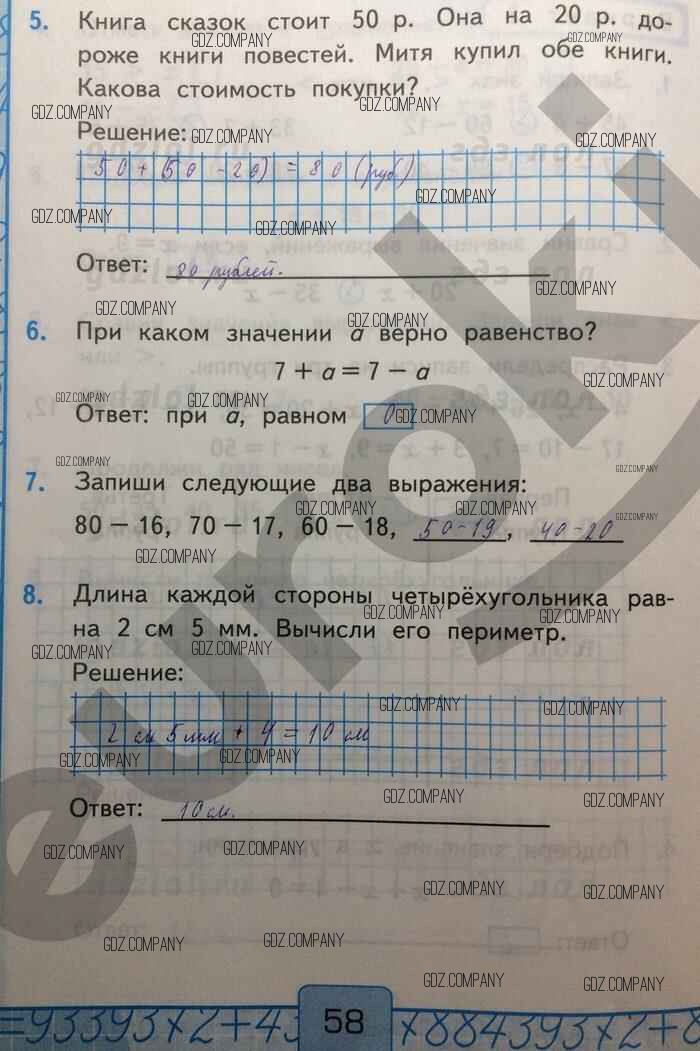 5. Книга сказок стоит 50 р. Она на 20 р. до-
роже книги повестей. Митя купил обе книги.
Какова стоимость покупки?
Решение:
50 + (50 - 20) = 80 (руб)
Ответ: 80 рублей.
6. При каком значении a верно равенство?
7 + a = 7 − a
Ответ: при a, равном 0
7. Запиши следующие два выражения:
80 − 16, 70 − 17, 60 − 18, 50-19, 40-20
8. Длина каждой стороны четырёхугольника рав-
на 2 см 5 мм. Вычисли его периметр.
Решение:
2 см 5 мм + 4 = 10 см
Ответ: 10 см.
58
=93393×2+43
×884393×2+8
GDZ.COMPANY
euroki